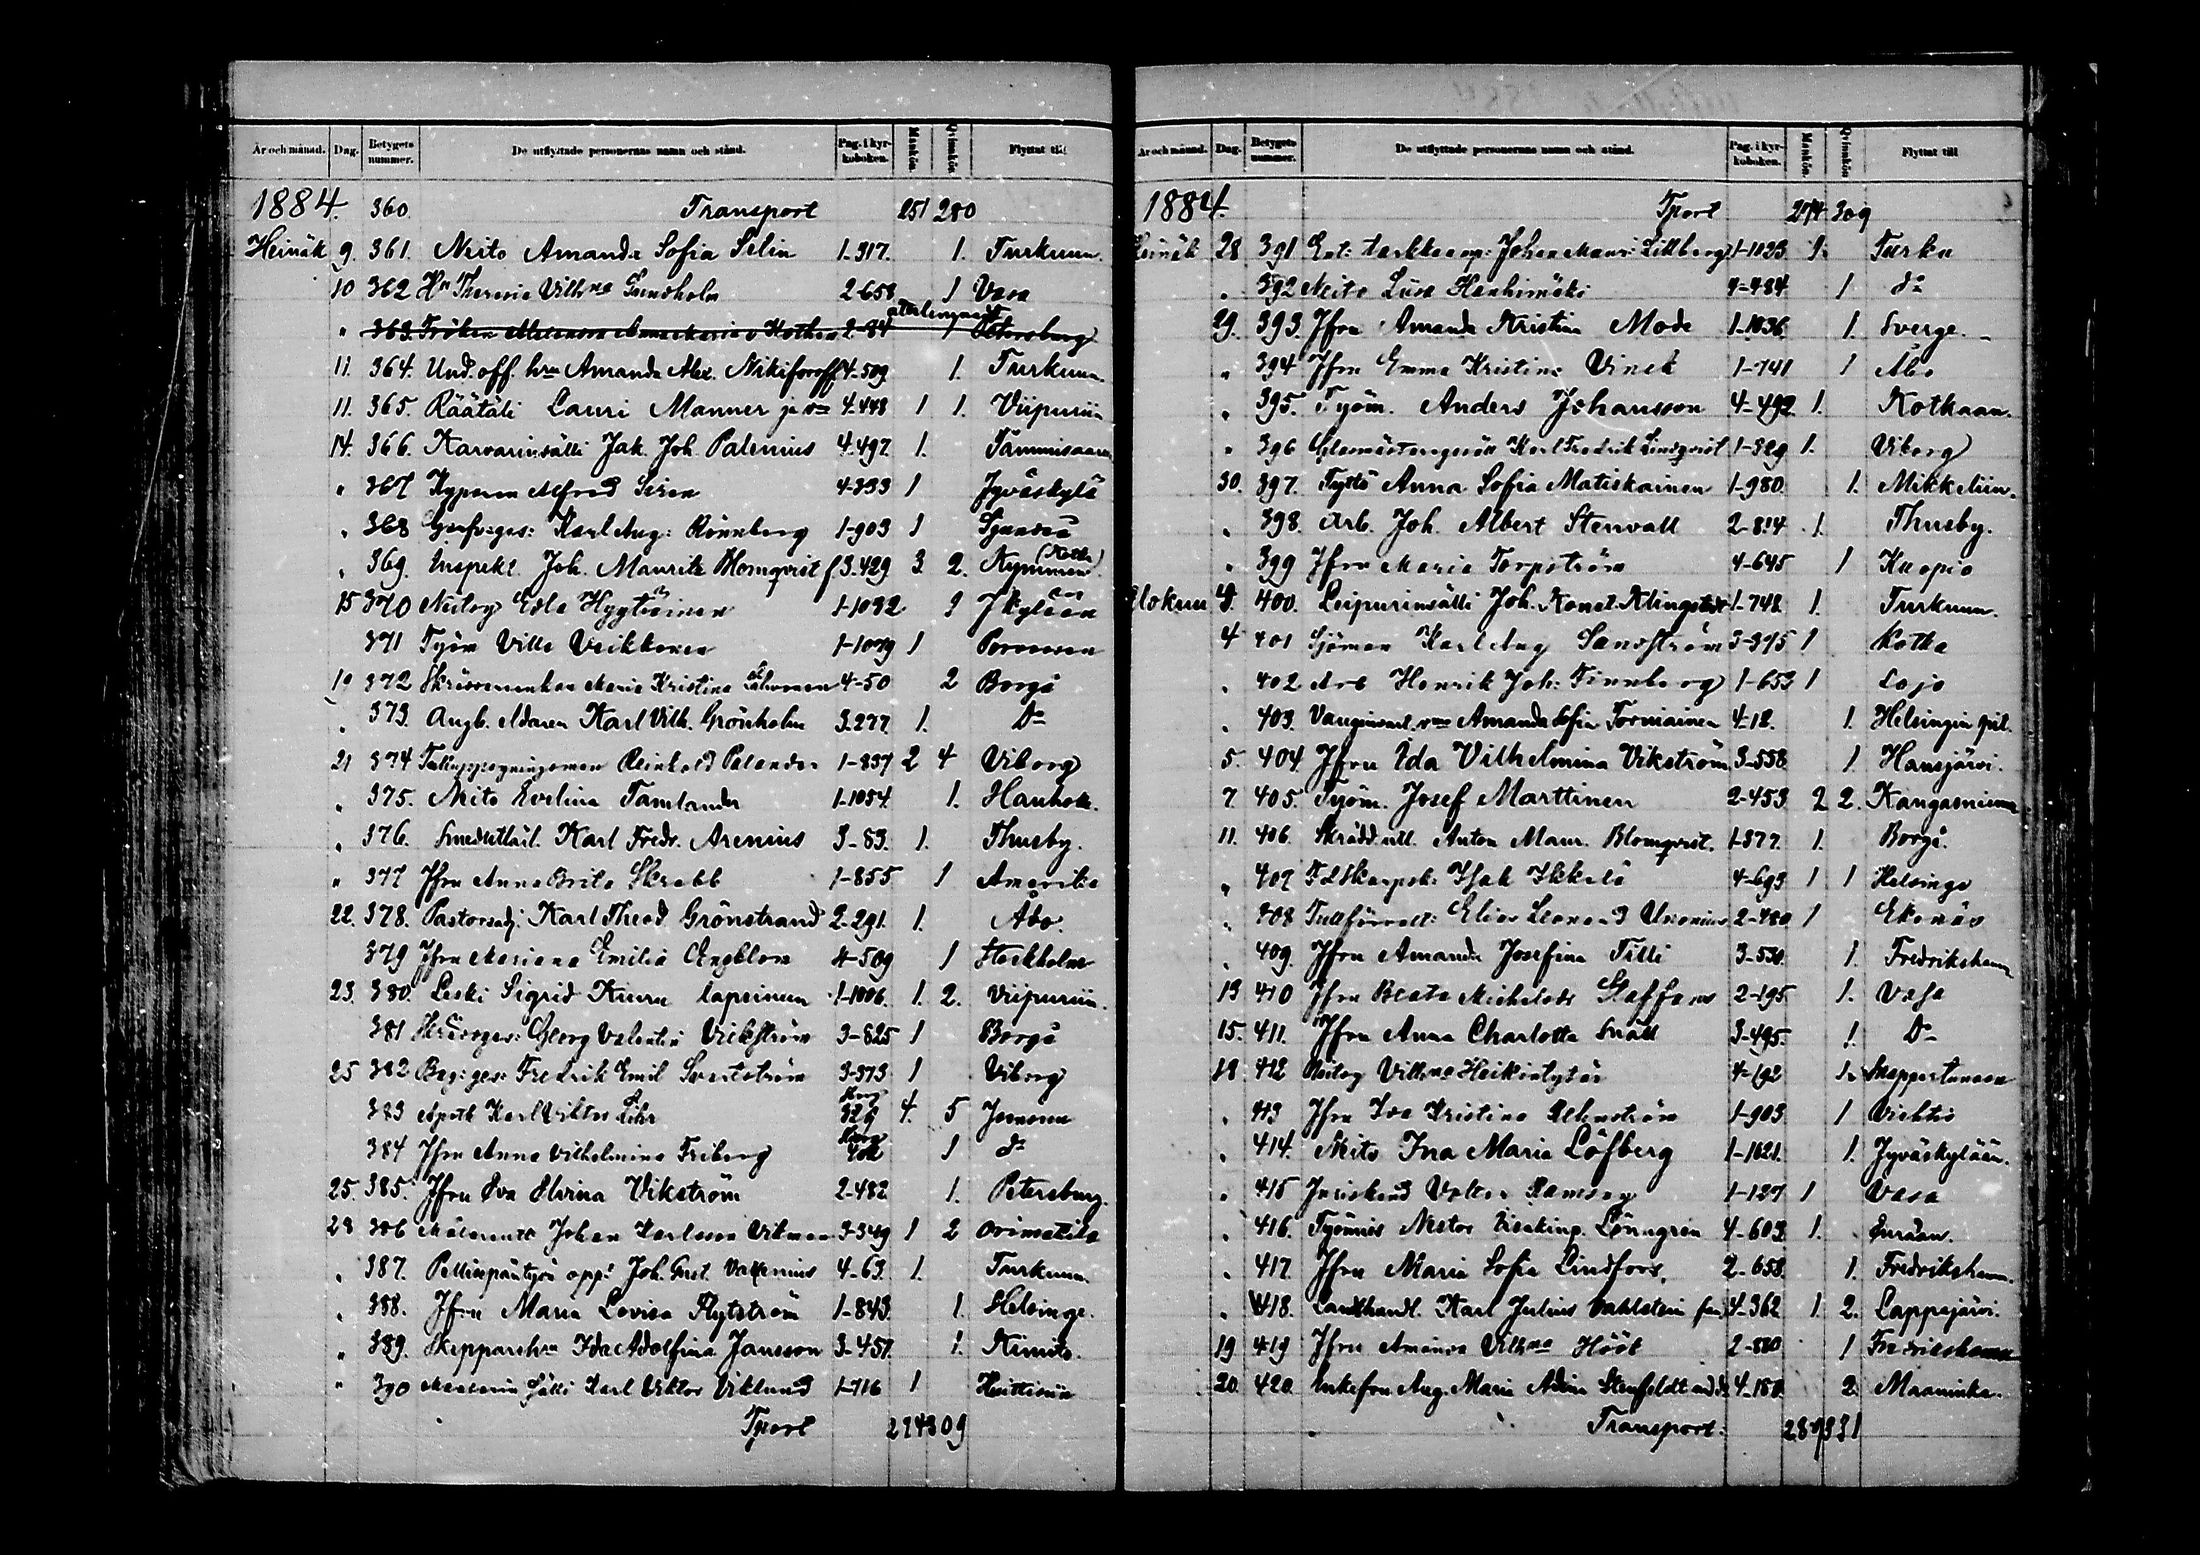 År och månad. Dag. Betygets nummer. De utflyttade personernas namn och stånd. Pag. i kyrkoboken. Mankön Qvinnkön Flyttat till
1884. 360. Transport 251 280
Heinäk 9. 361. Neito Amanda Sofia Selin 1-317. 1. Turkuun.
10 362 Hn Theresia Vilhna Sundholm 2-658 1 Vasa
" 363. Fröken Anna Maria v Kothen 2-84 1 Petersburg
11. 364. Und. off. hru Amanda Alex. Nikiforoff 4-509 1. Turkuun.
11. 365. Räätäli Lauri Manner ja vmo 4-448 1 1. Viipuriin
14. 366. Karvarinsälli Jak. Joh. Palenius 4-497. 1. Tammisaaren
" 367 Kypären Alfred Siren 4-333 1 Jyväskylä
" 368 Garfvages: Karl Aug: Rönnberg 1-903 1 Sjundeå
" 369. Inspekt. Joh. Mauritz Blomqvist f 3-429 3 2. Kymmene (Kotka)
15 370 Neitsy Edla Hygtiäinen 1-1092 1 Jkylään
371 Työm Ville Veikkonen 1-1079 1 Porvoosen
19 372 Maria Kristina 4-50 2 Borgå
" 373. Ångb. eldaren Karl Vilh. Grönholm 3-277. 1. Do
21 374 Reinhold Palander 1-837 2 4 Viborg
" 375. Neito Evelina Tamlander 1-1054. 1. Hauhok.
" 376. Smedutlärl. Karl Fredr. Arenius 3-83. 1. Thusby.
" 377 Jfru Anna Brita Skrabb 1-855 1 Amerika
22. 378. Pastorsadj. Karl Theod Grönstrand 2-291. 1. Åbo.
379 Jfru Mariana Emilia Engblom 4-509 1 Stockholm
23. 380. Leski Sigrid Kuuru lapsineen 1-1006. 1. 2. Viipuriin.
381 Georg Valentin Vickström 3-825 1 Borgå
25 382 Bag: ges: Fredrik Emil Svartström 3-373 1 Viborg
383 Apoth Karl Viktor Lihr 329 4. 5 Jomoma
384 Jfru Anna Vilhelmina Friberg 1 do
25. 385. Jfru Eva Elvira Vikström 2-482 1. Petersburg.
28 386 Johan Karlsson Vikman 3-349 1 2 Orimatila
" 387. Peltisepäntyön opp: Joh. Gust. Vallenius 4-63. 1. Turkuun.
" 388. Jfru Maria Lovisa Flytström 1-843. 1. Helsinge.
" 389. Skepparehru Ida Adolfina Jansson 3-457. 1. Kimito.
" 390 Maalarin Sälli Karl Viktor Viklund 1-716 1 Huittisiin
Tport 274 309
År och månad. Dag. Betygets nummer. De utflyttade personernas namn och stånd. Pag. i kyrkoboken. Mankön Qvinnkön Flyttat till
1884. Tport 274 309
Heinäk 28. 391 Ent: Johan Maur: Lillberg 1-1033 1. Turku
" 392 Neito Liisa Hanhimäki 4-484 1 do
29. 393. Jfru Amanda Kristina Mode 1-1036. 1. Sverge.
" 394 Jfru Emma Kristina Vinck 1-741 1 Åbo
" 395. Työm. Anders Johansson 4-492 1. Kotkaan.
" 396 Glasmästaregesäll Karl Fredrik Lindqvist 1-329 1. Viborg
30. 397. Tyttö Anna Sofia Matiskainen 1-980. 1. Mikkeliin.
" 398. Arb. Joh. Albert Stenvall 2-814 1. Thusby.
" 399 Jfru Maria Torpström 4-645 1 Kuopio
Elokuu 2. 400. Leipurinsälli Joh. Konst. Klingstedt 1-748. 1. Turkuun.
4 401 Sjöman Karl Aug Sandström 3-375 1 Kotka
" 402 Arb Henrik Joh: Finnberg 1-653 1 Lojo
" 403. Vanginvart. vmo Amanda Sofia Tormainen 4-12. 1. Helsingin pit.
5. 404. Jfru Ida Vilhelmina Vikström 3-558. 1. Hausjärvi.
7. 405. Työm. Josef Marttinen 2-453 2 2. Kangasniemi
11. 406. Skrädd. utl. Anton Maur. Blomqvist. 1-377. 1. Borgå.
" 407 Isak Ikkelä 4-693 1 1 Helsinge
" 408 Tullförvalt: Elias Leonard Unonius 2-480 1 Ekenäs
" 409. Jfru Amanda Josefina Tilli 3-530. 1. Fredrikshamn
13 410 Jfru Beata Michelsdr Staffans 2-195 1. Vasa
15. 411. Jfru Anna Charlotta Snäll 3-495. 1. Do
18 412 Neitsy Vilhna Heikintytär 4-192 1.
" 413 Jfru Ida Kristina Rehnström 1-903 1 Vichtis
" 414. Neito Ina Maria Löfberg 1-1021. 1. Jyväskylään.
" 415 Juriskand Valter Ramsay 1-127 1 Vasa
" 416. Työmies Nestor Lönngren 4-603. 1. Euraan.
" 417. Jfru Maria Sofia Lindfors, 2-658. 1. Fredrikshamn.
" 418. Landthandl. Karl Julius Vahlstein fam. 4-362 1 2. Lappajärvi.
19 419 Jfru Amanda Vilhna Höök 2-880 1 Fredrikshamn
20. 420. Enkefru Aug. Maria Adina Stenfeldt m. d. 4-180. 2. Maaninka.
Transport. 287 331